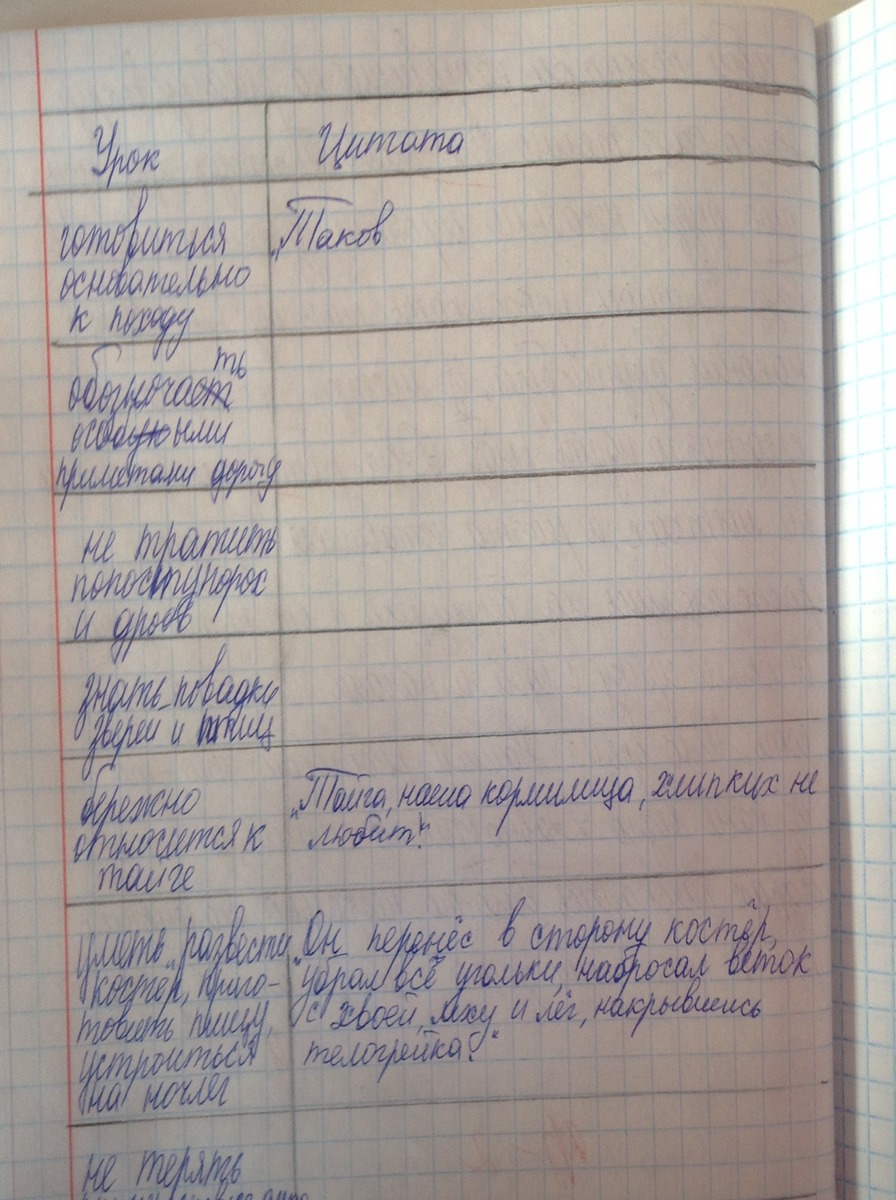 Урок
Цитата
готовиться
основательно
к походу
„Таков
обозначасть
особыми
приметами дорогу
не тратить
попосту порох
и дробь
знать повадки
зверей и птиц
бережно
относится к
тайге
„Тайга, наша кормилица, хлипких не
любит!“
уметь развести
костёр, приго-
товить пищу,
устроиться
на ночлег
„Он перенёс в сторону костёр,
убрал всё угольки, набросал веток
с хвоей, меху и лёг, накрывшись
телогрейка.“
не терять